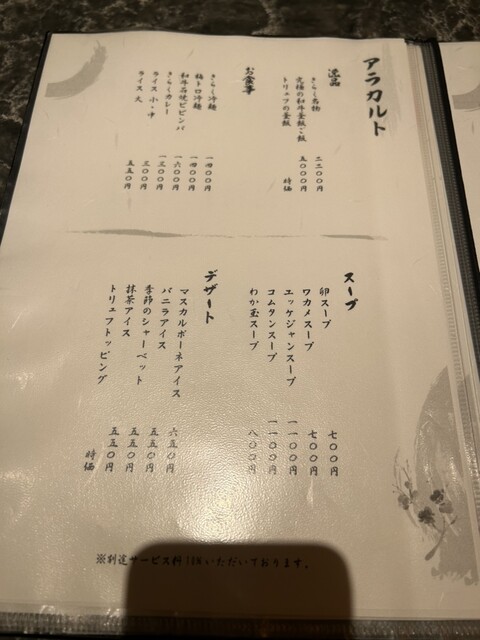 アラカルト
逸品
きらく名物
究極の和牛釜飯ご飯 二二〇〇円
トリュフの釜飯 五〇〇〇円
時価
お食事
きらく冷麺 一四〇〇円
梅トロ冷麺 一四〇〇円
和牛石焼ビビンバ 一六〇〇円
きらくカレー 一三〇〇円
ライス 小・中 三〇〇円
ライス 大 五五〇円
スープ
卵スープ 七〇〇円
ワカメスープ 七〇〇円
ユッケジャンスープ 一一〇〇円
コムタンスープ 一一〇〇円
わか玉スープ 八〇〇円
デザート
マスカルポーネアイス 六五〇円
バニラアイス 五五〇円
季節のシャーベット 五五〇円
抹茶アイス 五五〇円
トリュフトッピング 時価
※別途サービス料10%いただいております。